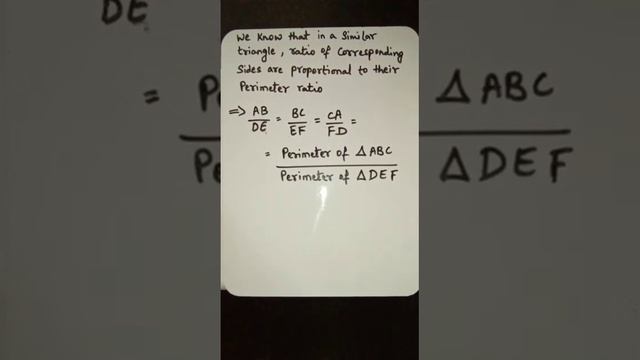 We know that in a similar
triangle, ratio of corresponding
sides are proportional to their
Perimeter ratio
⇒ AB/DE = BC/EF = CA/FD =
= Perimeter of △ABC / Perimeter of △DEF